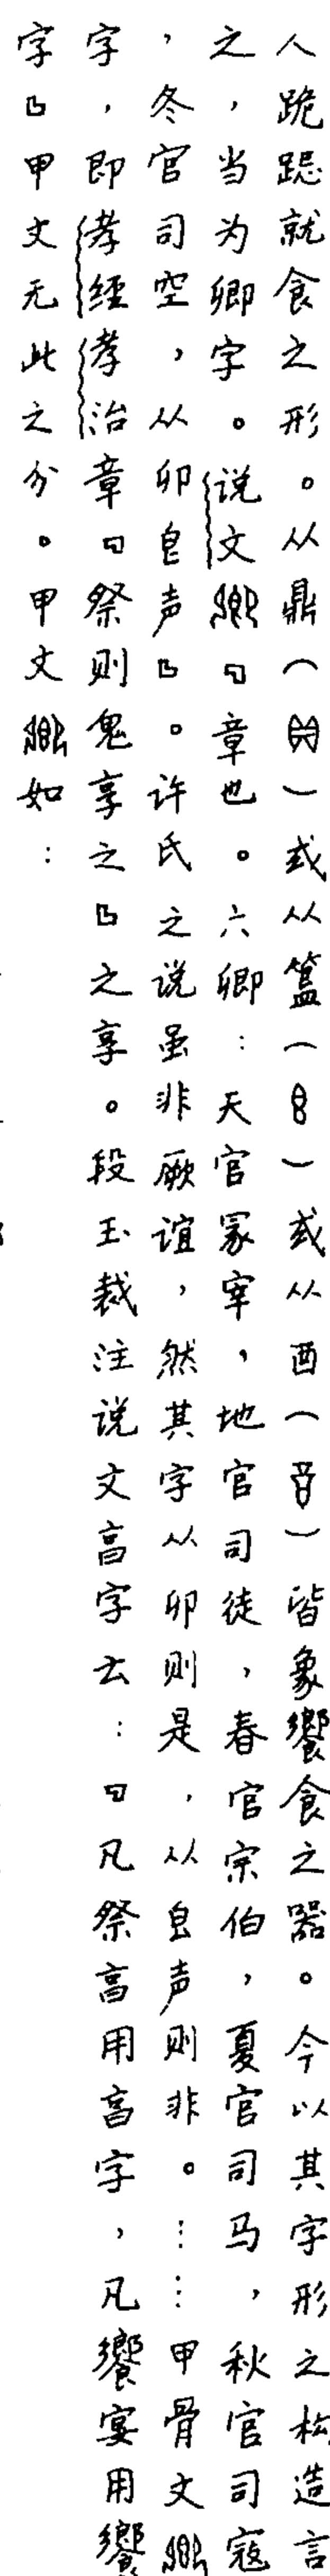 人跪跽就食之形。从鼎（）或从簋（）或从酉（）皆象饗食之器。今以其字形之构造言
之，当为卿字。说文「章也。六卿：天官冢宰，地官司徒，春官宗伯，夏官司马，秋官司寇
，冬官司空，从卯皀声」。许氏之说虽非厥谊，然其字从卯则是，从皀声则非。……甲骨文
字，即孝经孝治章「祭则鬼享之」之享。段玉裁注说文亯字云：「凡祭亯用亯字，凡饗宴用饗
字」甲文无此之分。甲文如：